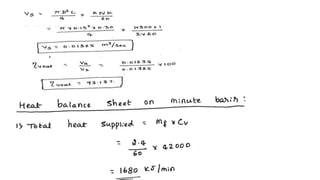 Vs = πD²L/4 × nNK/60
= π×0.15²×0.30/4 × n300×1/2×60
Vs = 0.01325 m³/sec
ηvout = Va/Vs = 0.01234/0.01325 × 100
ηvout = 93.13%
Heat balance sheet on minute basis :
1) Total heat supplied = mf × Cv
= 2.4/60 × 42000
= 1680 KJ/min